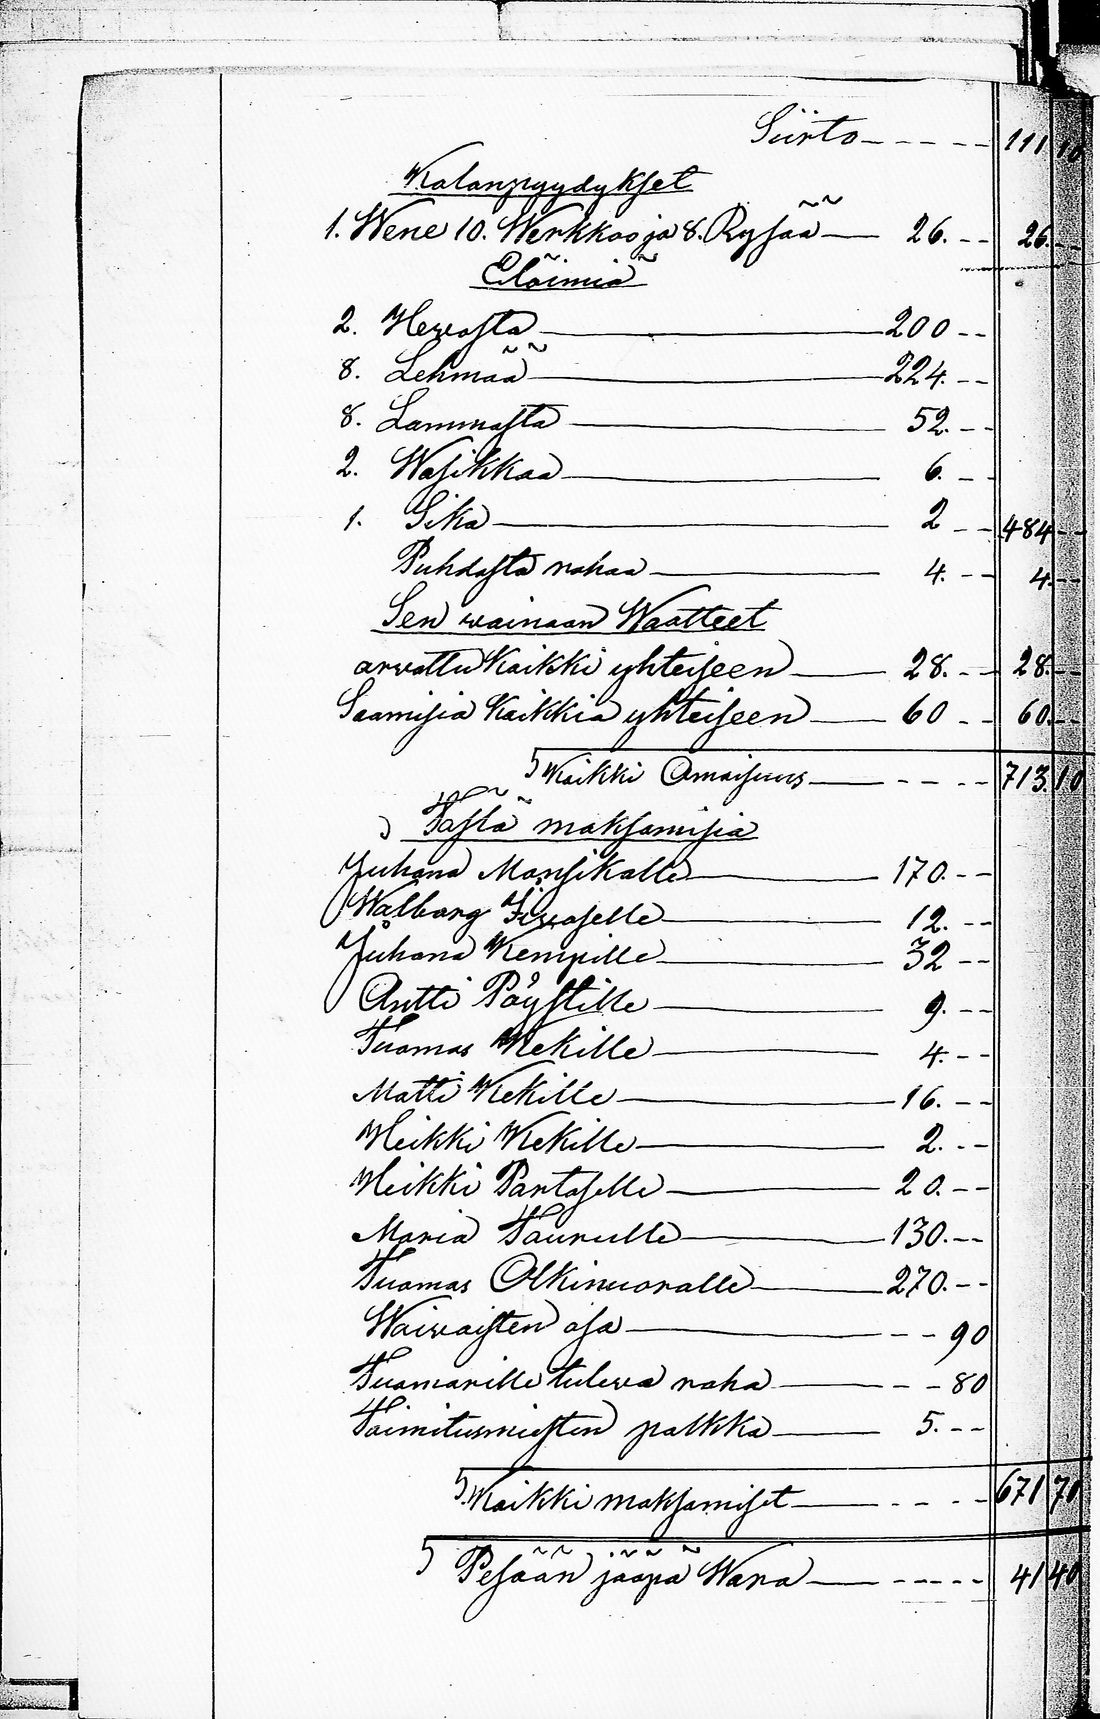 Siirto - - - - - 111 10
Kalanpyydykset
1. Wene 10. Werkkoo ja 8. Rysää — 26. - - 26. - -
Eläimiä
2. Hewosta — 200 - -
8. Lehmää — 224. - -
8. Lammasta — 52. - -
2. Wasikkaa — 6. - -
1. Sika — 2 - - 484 - -
Puhdasta rahaa — 4. - - 4. - -
Sen wainaan Waatteet
arwattu Kaikki yhteiseen — 28. - - 28. - -
Saamisia Kaikkia yhteiseen — 60 - - 60. - -
Kaikki Omaisuus — - - - - 713. 10
Tästä maksamisia
Juhana Mansikalle — 170. - -
Walborg Siwoselle — 12. - -
Juhana Kempille — 32 - -
Antti Pöystille — 9. - -
Tuomas Kekille — 4. - -
Matti Kekille — 16. - -
Heikki Kekille — 2. - -
Heikki Partaselle — 20. - -
Maria Taurulle — 130. - -
Tuomas Olkinuoralle — 270. - -
Waiwaisten osa — - - 90
Tuomarille tulewa raha — - - 80
Toimitusmiesten palkka — 5. - -
Kaikki maksamiset — - - - - 671 70
Pesään jääpä Wara — - - - - - 41 40